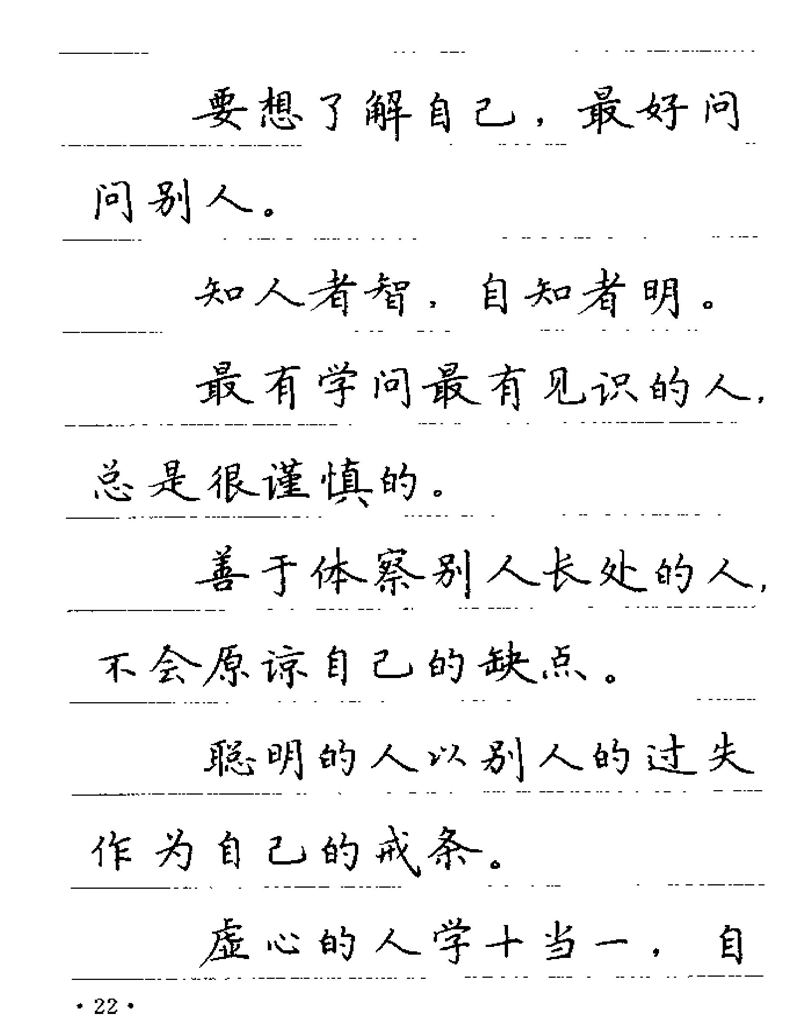 要想了解自己，最好问
问别人。
知人者智，自知者明。
最有学问最有见识的人，
总是很谨慎的。
善于体察别人长处的人，
不会原谅自己的缺点。
聪明的人以别人的过失
作为自己的戒条。
虚心的人学十当一，自
·22·